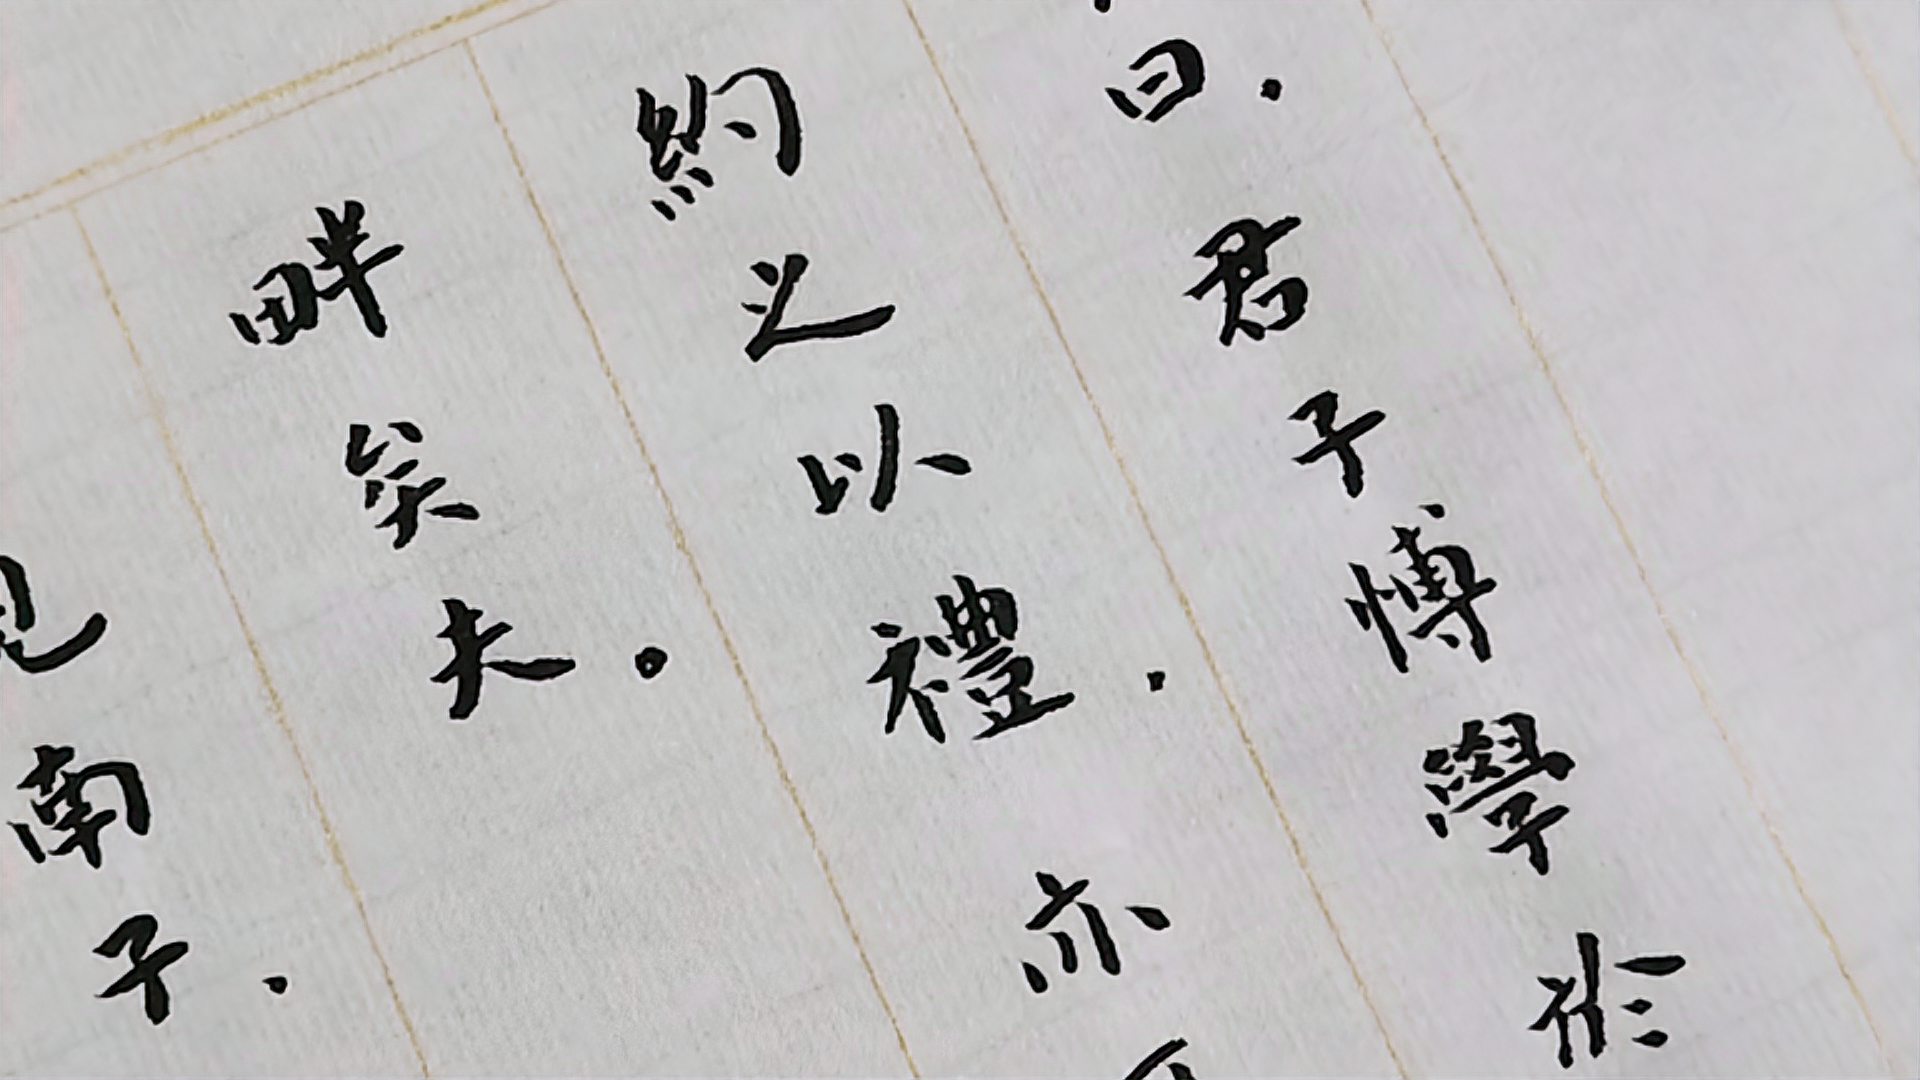 曰．君子博學於
約之以禮．亦
畔矣夫。
見南子．